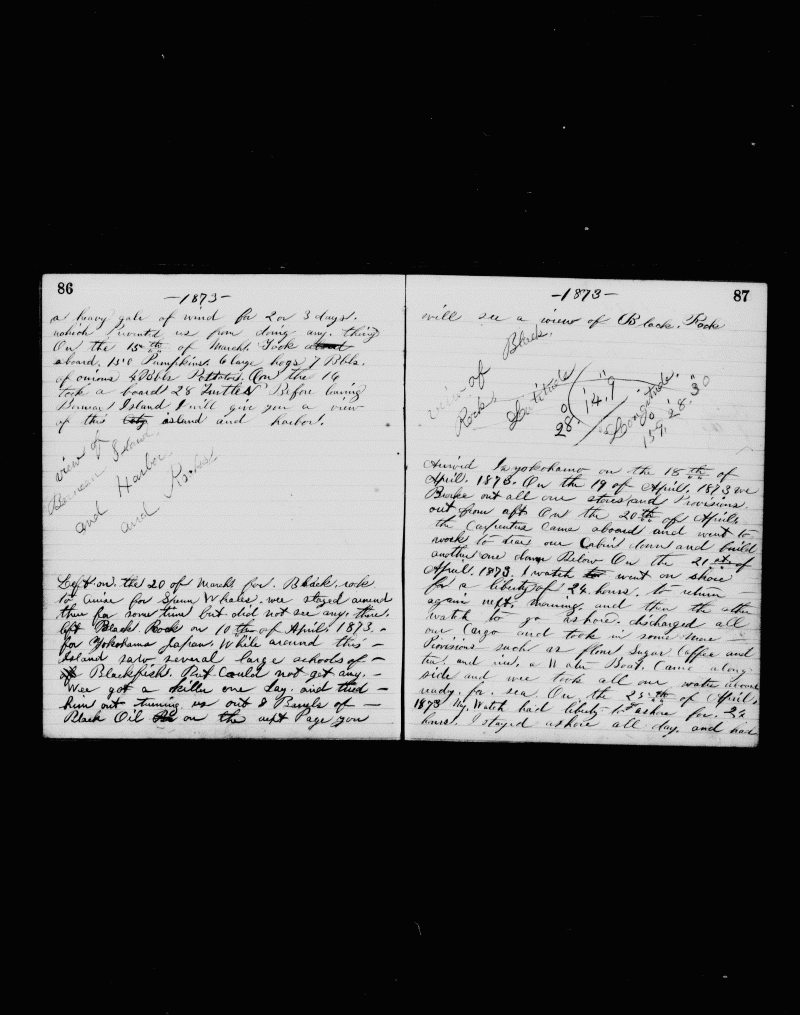 86
-1873-
a heavy gale of wind for 2 or 3 days.
which prevented us from doing any. thing
On the 15th of March. Took
aboard. 150 Pumpkins. 6 large hogs 7 Bbls.
of onions 4 Bbls Potatoes. On the 16
took a board 28 Turtles Before leaving
Island. I will give you a view
of this City island and harbor.
view of
Island
and Harbor
and Rocks
Left on. the 20 of March for. Black. rock
to Cruise for Sperm Whales. wee stayed around
there for some time but did not see any. there.
left Black Rock on 10th of April. 1873. -
for Yokohama Japan. While around this -
Island saw several large schools of -
Blackfish. But Could not get any. -
Wee got a killer one Day. and tried -
him out turning us out 8 Barrels of -
Black Oil on the next Page you
-1873-
87
will see a view of Black. Rock
view of Black.
Rocks
Latitude
28° 14' 9"
Longitude.
159° 28' 30"
Arrived In yokohama on the 18th of
April. 1873. On the 19 of April. 1873 we
Broke out all our stores and Provisions.
out from aft On the 20th of April.
the Carpenters Came aboard and went to
work to tear our Cabin down and build
another one down Below On the 21st of
April. 1873. 1 watch went on shore
for a liberty of 24. hours. to return
again next. morning. and then the other
watch to go ashore. discharged all
our Cargo and took in some more
Provisions such as flour Sugar Coffee and
tea. and rice. a Water Boat. Came along
side and wee took all our water aboard
ready. for. sea. On the 25th of April.
1873 My. Watch had liberty ashore for. 24
hours. I stayed ashore all day. and had